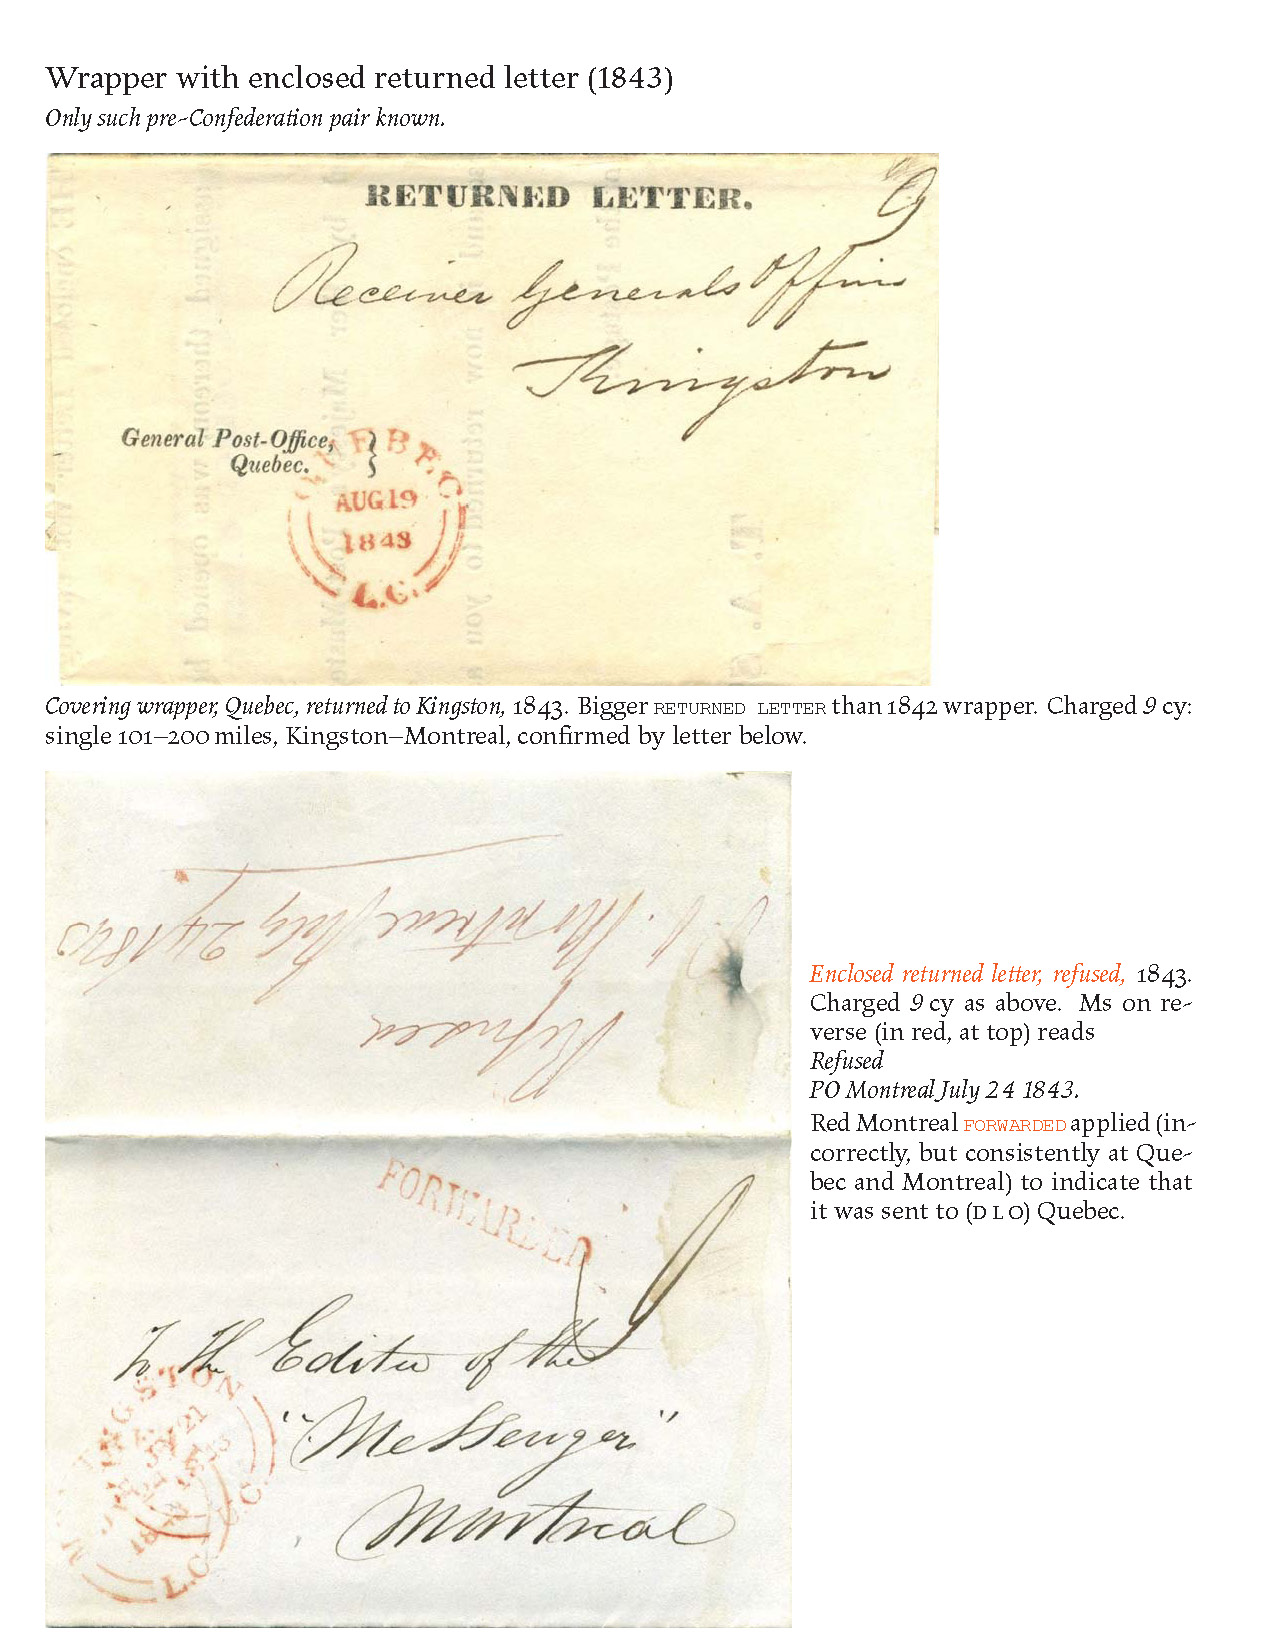 Wrapper with enclosed returned letter (1843)
Only such pre-Confederation pair known.
RETURNED LETTER.
9
Receiver Generals Office
Kingston
General Post-Office, }
Quebec.
QUEBEC
AUG 19
1843
L.C.
Covering wrapper, Quebec, returned to Kingston, 1843. Bigger RETURNED LETTER than 1842 wrapper. Charged 9 cy:
single 101–200 miles, Kingston–Montreal, confirmed by letter below.
Refused
P.O. Montreal July 24 1843
Enclosed returned letter, refused, 1843.
Charged 9 cy as above. Ms on re-
verse (in red, at top) reads
Refused
PO Montreal July 24 1843.
Red Montreal FORWARDED applied (in-
correctly, but consistently at Que-
bec and Montreal) to indicate that
it was sent to (DLO) Quebec.
FORWARDED
9
To the Editor of the
"Messenger"
Montreal
KINGSTON
JY 21
U.C.
L.C.